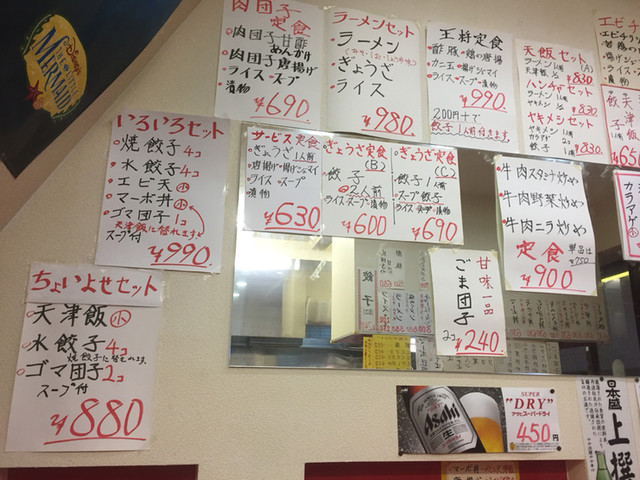 Disney's
THE LITTLE
MERMAID
肉団子定食
肉団子甘酢
あんかけ
肉団子唐揚げ
ライス・スープ
漬物
¥690
ラーメンセット
ラーメン
ぎょうざ
ライス
¥980
王将定食
酢豚・鶏の唐揚
カニ玉・揚げシューマイ
ライス・スープ・漬物
¥990
200円+で
餃子1人前付きます
天飯セット
ラーメン1人前 (A)
天津飯 1/2
¥830
ハンチャーセット
ラーメン1人前
ヤキメシ 1/2
¥830
ヤキメシセット
ヤキメシ1人前
カラアゲ
餃子
¥830
いろいろセット
焼餃子4コ
水餃子4コ
エビ天小
マーボ丼小
ゴマ団子1コ
天津飯に替れます
スープ付
¥990
サービス定食
ぎょうざ1人前
唐揚げ・揚げシューマイ
ライス・スープ
漬物
¥630
ぎょうざ定食
(B)
餃子
2人前
ライス・スープ・漬物
¥600
ぎょうざ定食
(C)
餃子1人前
唐揚げ
ライス・スープ・漬物
¥690
牛肉スタミナ炒め
牛肉野菜炒め
牛肉ニラ炒め
定食
単品は
¥750
¥900
カラアゲ
甘味一品
ごま団子
2コ
¥240
ちょいよせセット
天津飯小
水餃子4コ
焼餃子に替えれます。
ゴマ団子2コ
スープ付
¥880
餃子
Asahi
生
SUPER
"DRY"
アサヒスーパードライ
450円
日本盛
上撰